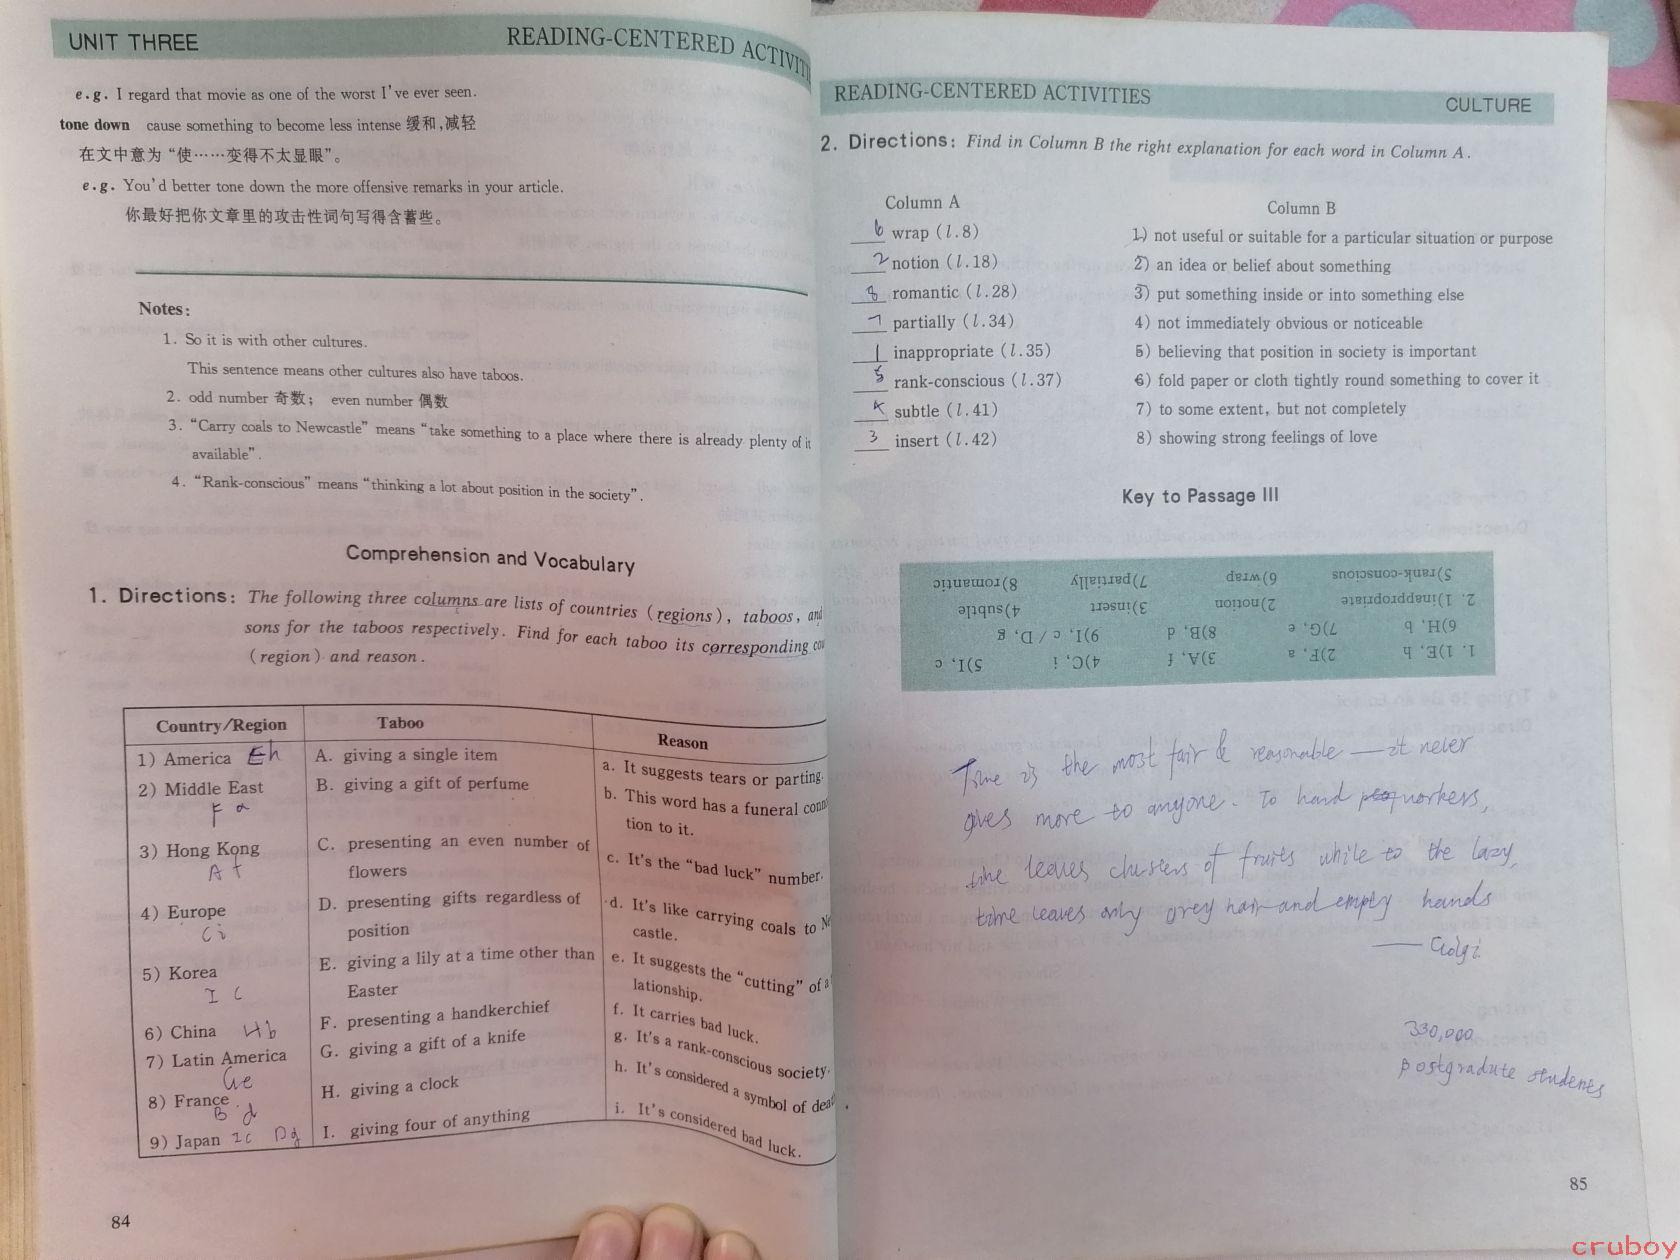 UNIT THREE
READING-CENTERED ACTIVITI
e.g. I regard that movie as one of the worst I've ever seen.
tone down cause something to become less intense 缓和,减轻
在文中意为“使……变得不太显眼”。
e.g. You'd better tone down the more offensive remarks in your article.
你最好把你文章里的攻击性词句写得含蓄些。
Notes:
1. So it is with other cultures.
This sentence means other cultures also have taboos.
2. odd number 奇数; even number 偶数
3. “Carry coals to Newcastle” means “take something to a place where there is already plenty of it
available”.
4. “Rank-conscious” means “thinking a lot about position in the society”.
Comprehension and Vocabulary
1. Directions: The following three columns are lists of countries (regions), taboos, and
sons for the taboos respectively. Find for each taboo its corresponding cou
(region) and reason.
Country/Region Taboo Reason
1) America Eh
2) Middle East
F a
3) Hong Kong
A f
4) Europe
C i
5) Korea
I c
6) China Hb
7) Latin America
Ge
8) France
B d
9) Japan Ic Dg
A. giving a single item
B. giving a gift of perfume
C. presenting an even number of
flowers
D. presenting gifts regardless of
position
E. giving a lily at a time other than
Easter
F. presenting a handkerchief
G. giving a gift of a knife
H. giving a clock
I. giving four of anything
a. It suggests tears or parting.
b. This word has a funeral conn
tion to it.
c. It's the “bad luck” number.
d. It's like carrying coals to Ne
castle.
e. It suggests the “cutting” of a
lationship.
f. It carries bad luck.
g. It's a rank-conscious society.
h. It's considered a symbol of dea
i. It's considered bad luck.
84
READING-CENTERED ACTIVITIES
CULTURE
2. Directions: Find in Column B the right explanation for each word in Column A.
Column A
6 wrap (l.8)
2 notion (l.18)
8 romantic (l.28)
7 partially (l.34)
1 inappropriate (l.35)
5 rank-conscious (l.37)
4 subtle (l.41)
3 insert (l.42)
Column B
1) not useful or suitable for a particular situation or purpose
2) an idea or belief about something
3) put something inside or into something else
4) not immediately obvious or noticeable
5) believing that position in society is important
6) fold paper or cloth tightly round something to cover it
7) to some extent, but not completely
8) showing strong feelings of love
Key to Passage III
1. 1)E, h 2)F, a 3)A, f 4)C, i 5)I, c
6)H, b 7)G, e 8)B, d 9)I, c / D, g
2. 1)inappropriate 2)notion 3)insert 4)subtle
5)rank-conscious 6)wrap 7)partially 8)romantic
Time is the most fair & reasonable — it never
gives more to anyone. To hard workers,
time leaves clusters of fruits while to the lazy,
time leaves only grey hair and empty hands
—— Golgi
330,000
postgradute students
85
cruboy